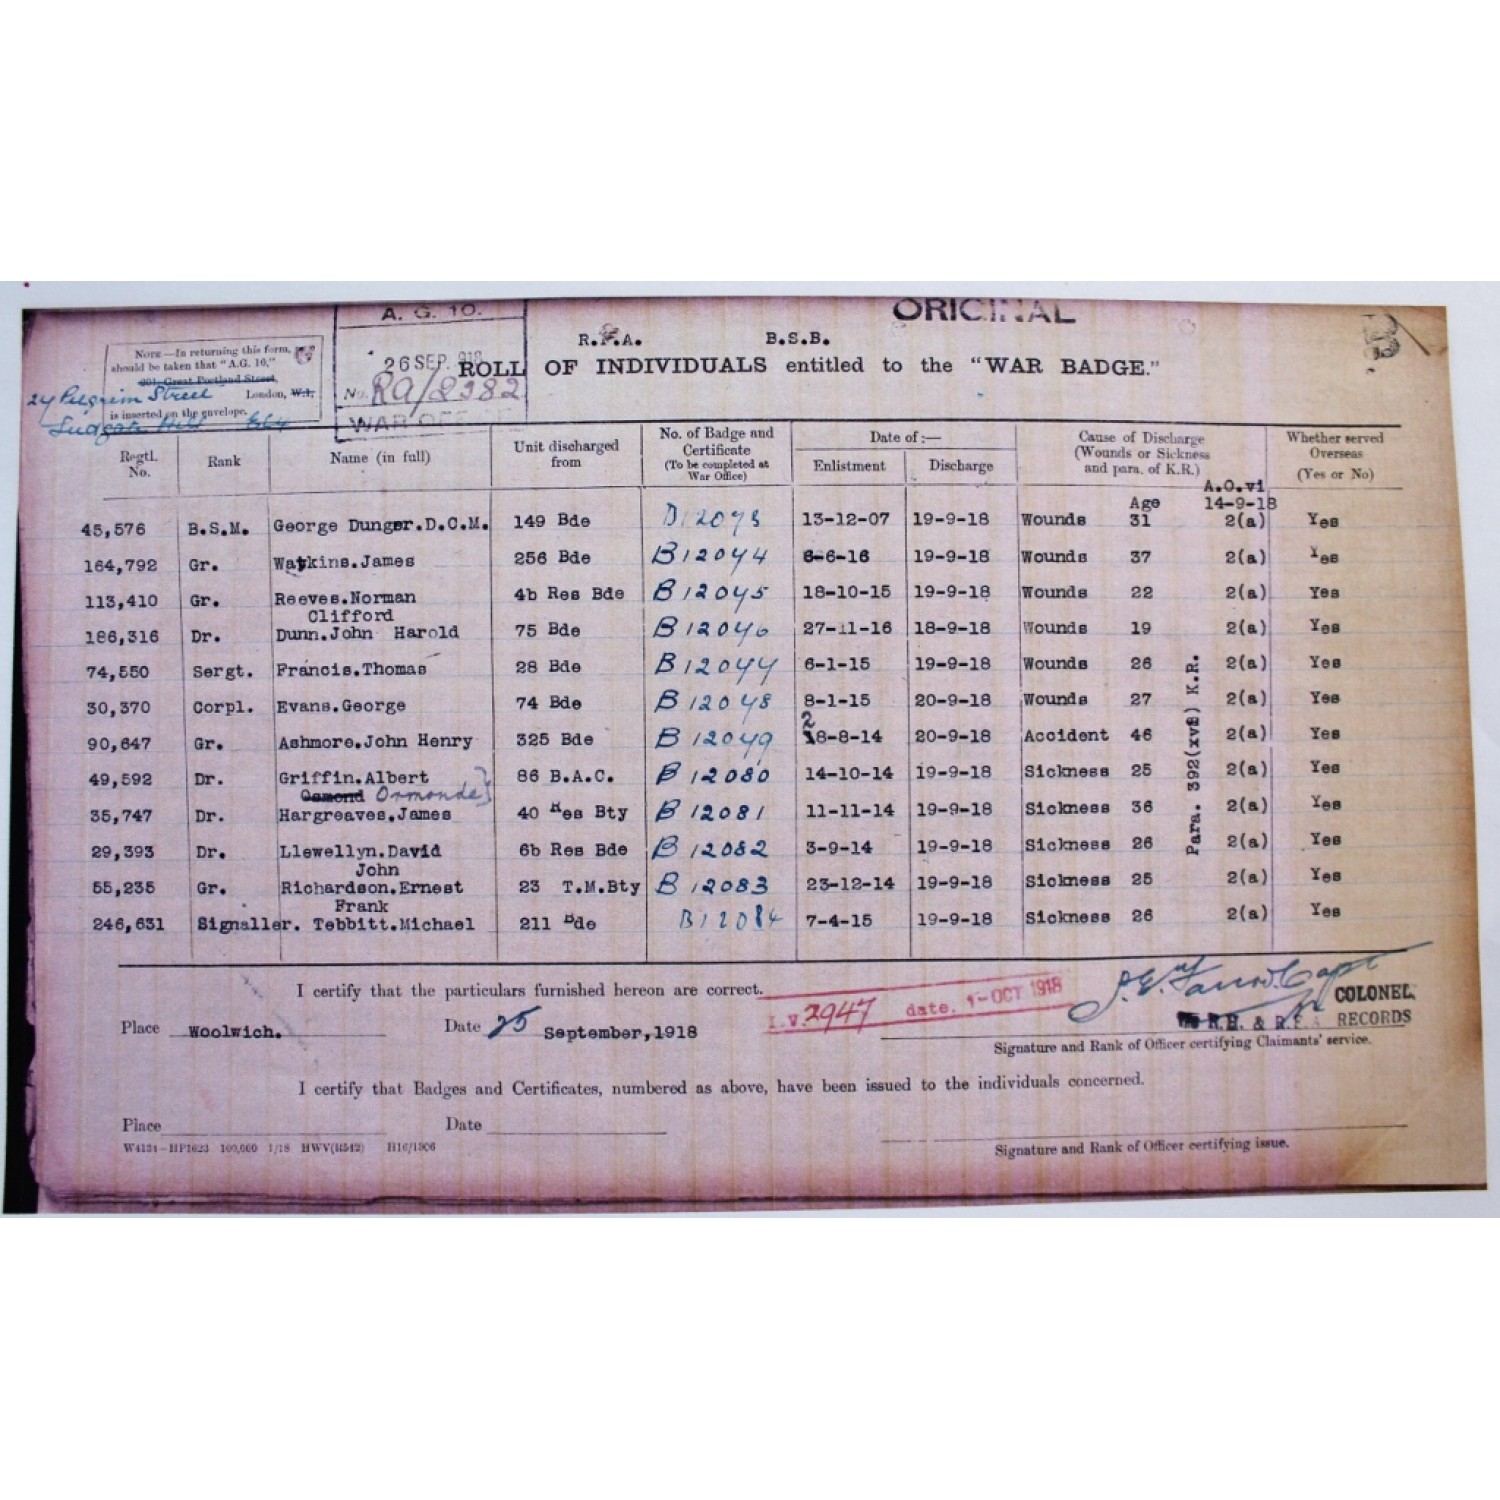 A. G. 10.
ORIGINAL
26 SEP. 1918
No. RA/2382
WAR OFFICE
R.F.A. B.S.B.
ROLL OF INDIVIDUALS entitled to the "WAR BADGE."
NOTE—In returning this form,
should be taken that "A.G. 10,"
201, Great Portland Street,
24 Pilgrim Street London, W.1,
is inserted on the envelope.
Ludgate Hill EC4
Regtl. No. Rank Name (in full) Unit discharged from No. of Badge and Certificate (To be completed at War Office) Date of :— Enlistment Discharge Cause of Discharge (Wounds or Sickness and para. of K.R.) Whether served Overseas (Yes or No)
A.O.vi
Age 14-9-18
45,576 B.S.M. George Dunger.D.C.M. 149 Bde B12043 13-12-07 19-9-18 Wounds 31 2(a) Yes
164,792 Gr. Watkins.James 256 Bde B12044 6-6-16 19-9-18 Wounds 37 2(a) Yes
113,410 Gr. Reeves.Norman 4b Res Bde B12045 18-10-15 19-9-18 Wounds 22 2(a) Yes
Clifford
186,316 Dr. Dunn.John Harold 75 Bde B12046 27-11-16 18-9-18 Wounds 19 2(a) Yes
74,550 Sergt. Francis.Thomas 28 Bde 6-1-15 19-9-18 Wounds 26 2(a) Yes
30,370 Corpl. Evans.George 74 Bde B12048 8-1-15 20-9-18 Wounds 27 2(a) Yes
90,647 Gr. Ashmore.John Henry 325 Bde B12049 28-8-14 20-9-18 Accident 46 2(a) Yes
49,592 Dr. Griffin.Albert 86 B.A.C. B12080 14-10-14 19-9-18 Sickness 25 2(a) Yes
Osmond Ormonde
35,747 Dr. Hargreaves.James 40 Res Bty B12081 11-11-14 19-9-18 Sickness 36 2(a) Yes
29,393 Dr. Llewellyn.David 6b Res Bde B12082 3-9-14 19-9-18 Sickness 26 2(a) Yes
John
55,235 Gr. Richardson.Ernest 23 T.M.Bty B12083 23-12-14 19-9-18 Sickness 25 2(a) Yes
Frank
246,631 Signaller. Tebbitt.Michael 211 Bde B12084 7-4-15 19-9-18 Sickness 26 2(a) Yes
Para. 392(xvi) K.R.
I certify that the particulars furnished hereon are correct.
I.V. 2947 date. 1-OCT 1918
Capt
COLONEL,
R.H. & R.F.A. RECORDS
Place Woolwich. Date 25 September,1918
Signature and Rank of Officer certifying Claimants' service.
I certify that Badges and Certificates, numbered as above, have been issued to the individuals concerned.
Place Date
W4134—HP1623 100,000 1/18 HWV(R542) H16/1306
Signature and Rank of Officer certifying issue.